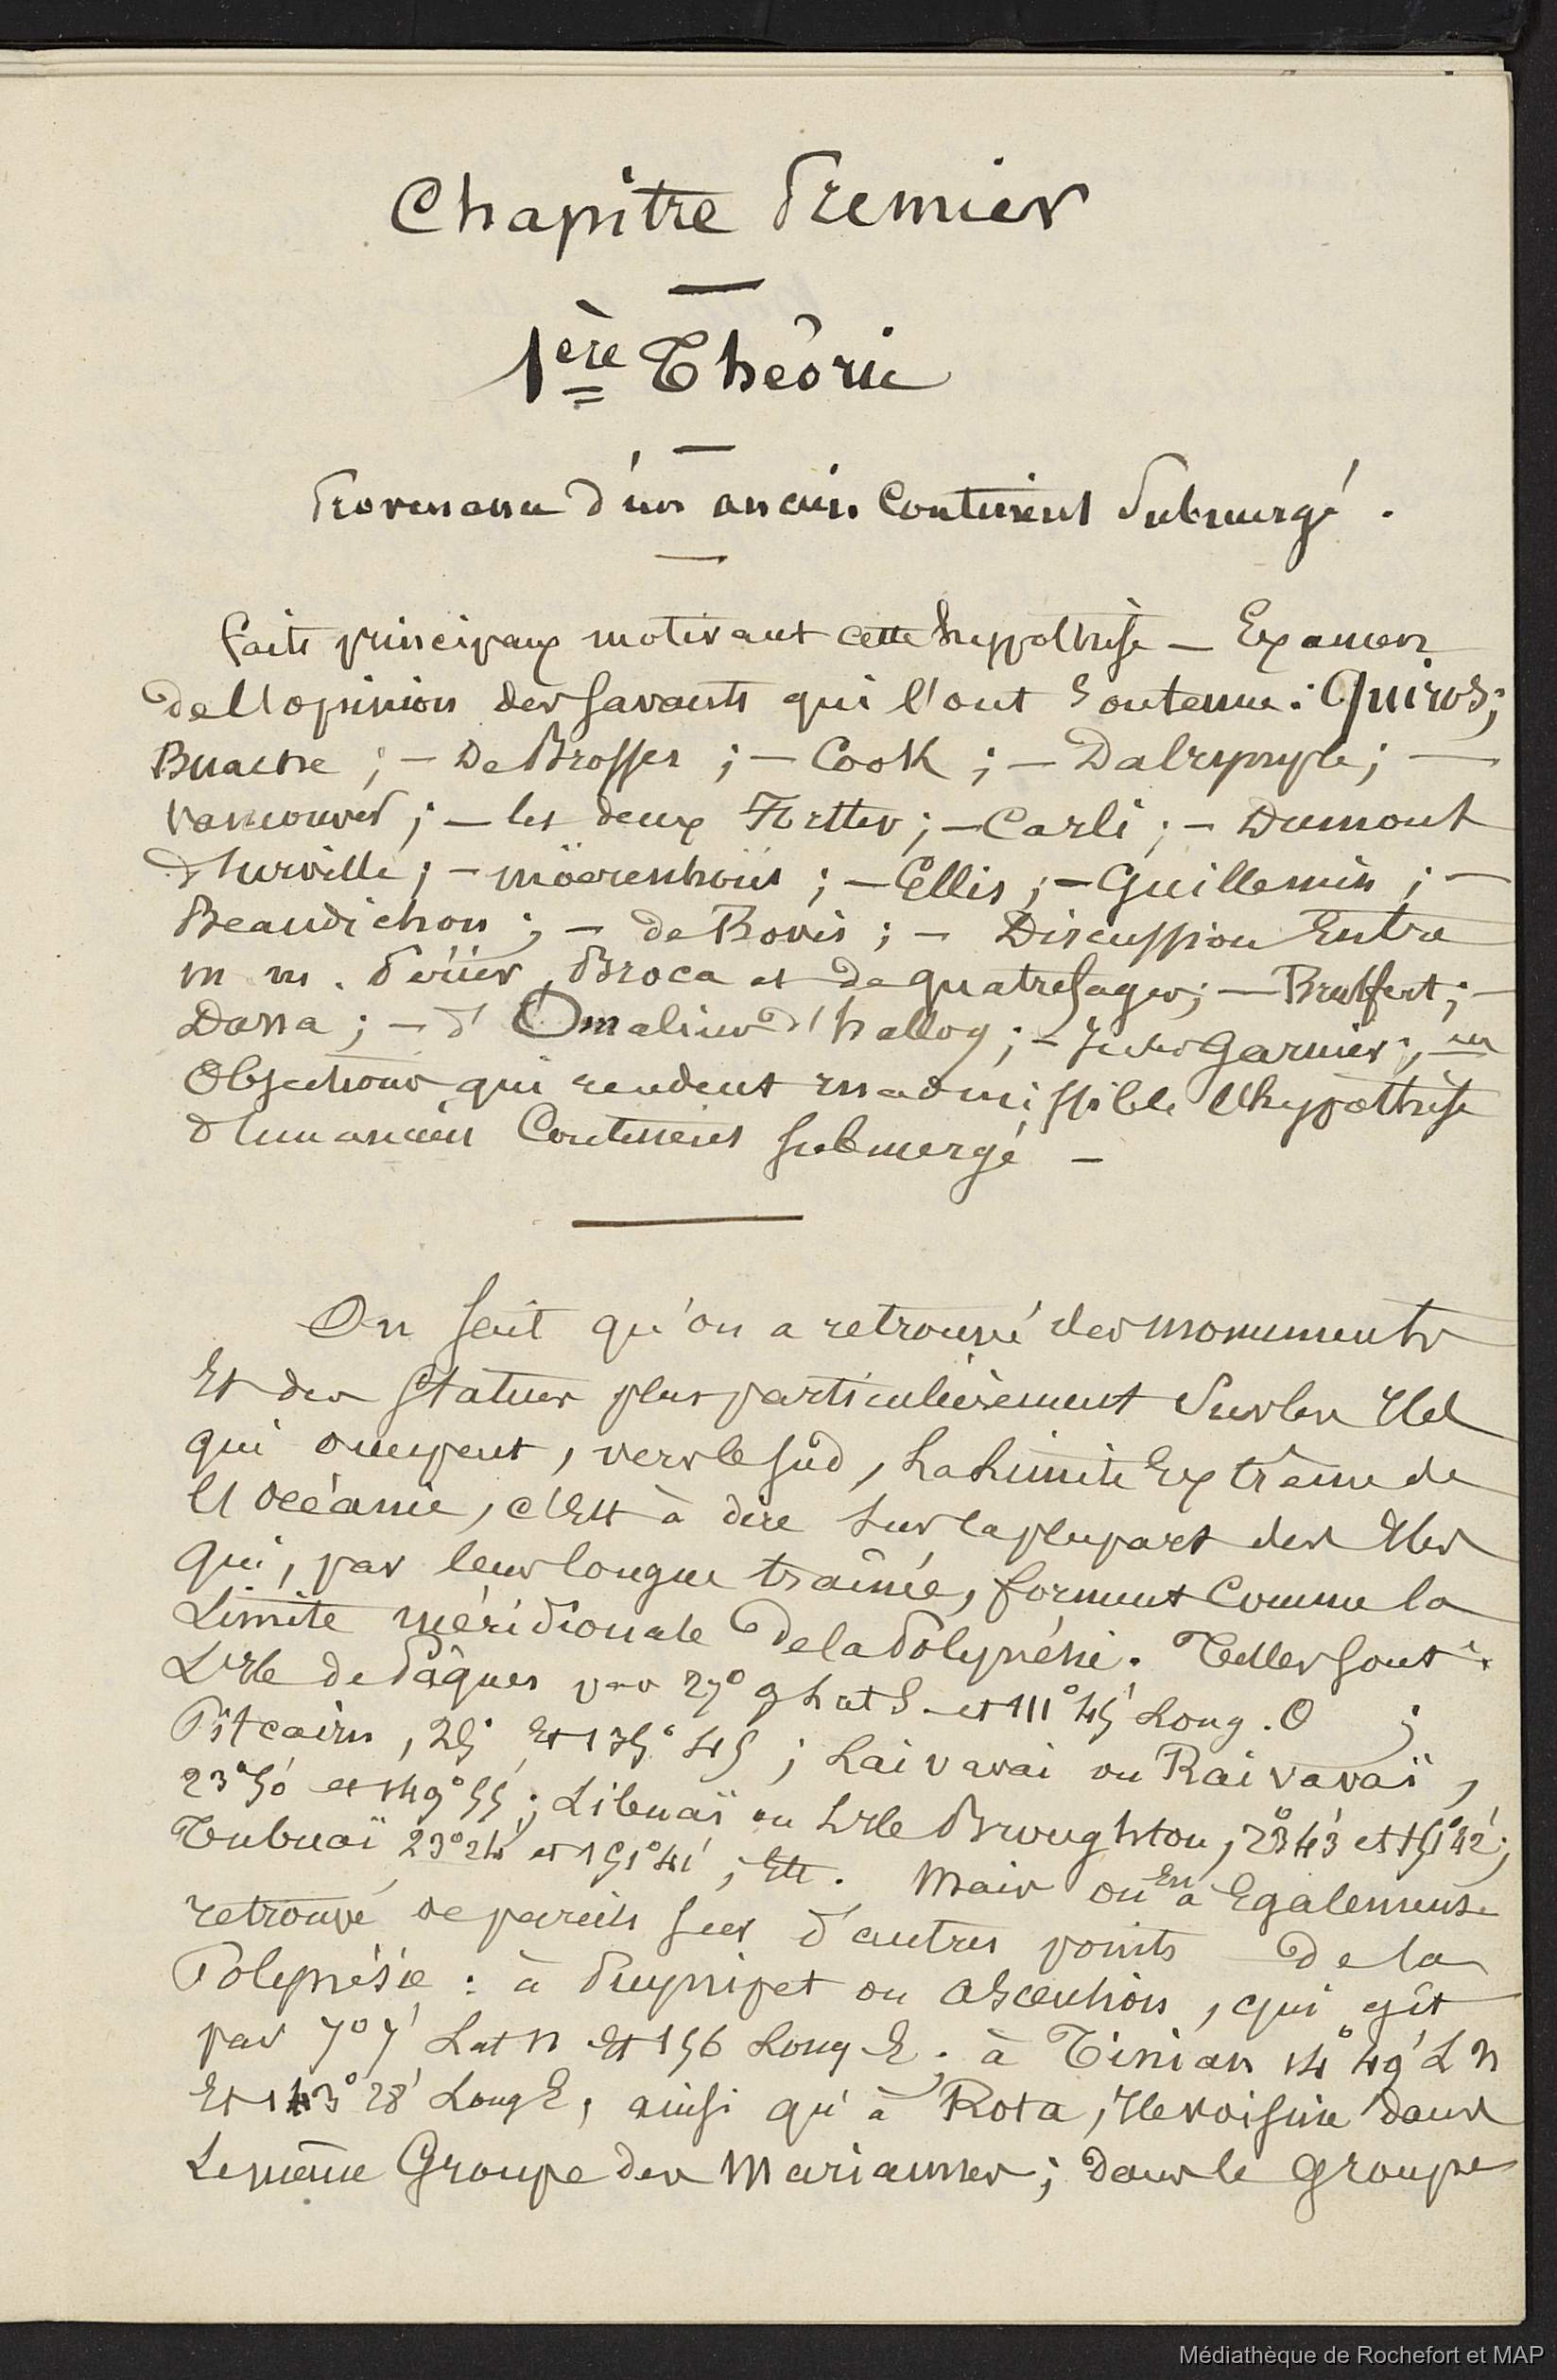 Chapitre Premier
1ère Théorie
Provenance d'un ancien Continent Submergé.
Faits principaux motivant cette hypothèse — Examen
de l'opinion des Savants qui l'ont Soutenue: Quiros;
Buache; — De Brosses; — Cook; — Dalrymple; —
Vancouver; — les deux Forster; — Carli; — Dumont
d'urville; — Möerenhoüt; — Ellis; — Guillemin; —
Beaudichon; — de Bovis; — Discussion Entre
m m. Périer, Broca et de quatrefages; — Brulfert; —
Dana; — d'Omalius d'halloy; — Jules Garnier; —
Objections qui rendent inadmissible l'hypothèse
d'un ancien Continent Submergé —
On sait qu'on a retrouvé des monuments
Et des Statues plus particulièrement Sur les Iles
qui occupent, vers le Sud, La Limite Extrême de
l'Océanie, c'Est à dire Sur la plupart des Iles
qui, par leur longue traînée, forment Comme la
Limite méridionale de la Polynésie. Telles sont:
L'Ile de Pâques par 27° 9 Lat S. et 111° 45' Long. O;
Pitcairn, 25° Et 135° 45; Laivavai ou Raivavaï,
23° 50' et 149° 55'; Libuaï ou L'Ile Broughton, 23° 43' et 151° 42';
Tubuaï 23° 24' et 151° 41'; Etc. Mais on En a Egalement
retrouvé de pareils sur d'autres points de la
Polynésie: à Puynipet ou Ascension, qui gît
par 7° 7' Lat n Et 156 Long E; à Tinian 14° 49' L N
Et 143° 28' Long E, ainsi qu'à Rota, Ile voisine dans
Le même Groupe des Mariannes; dans le groupe
Médiathèque de Rochefort et MAP